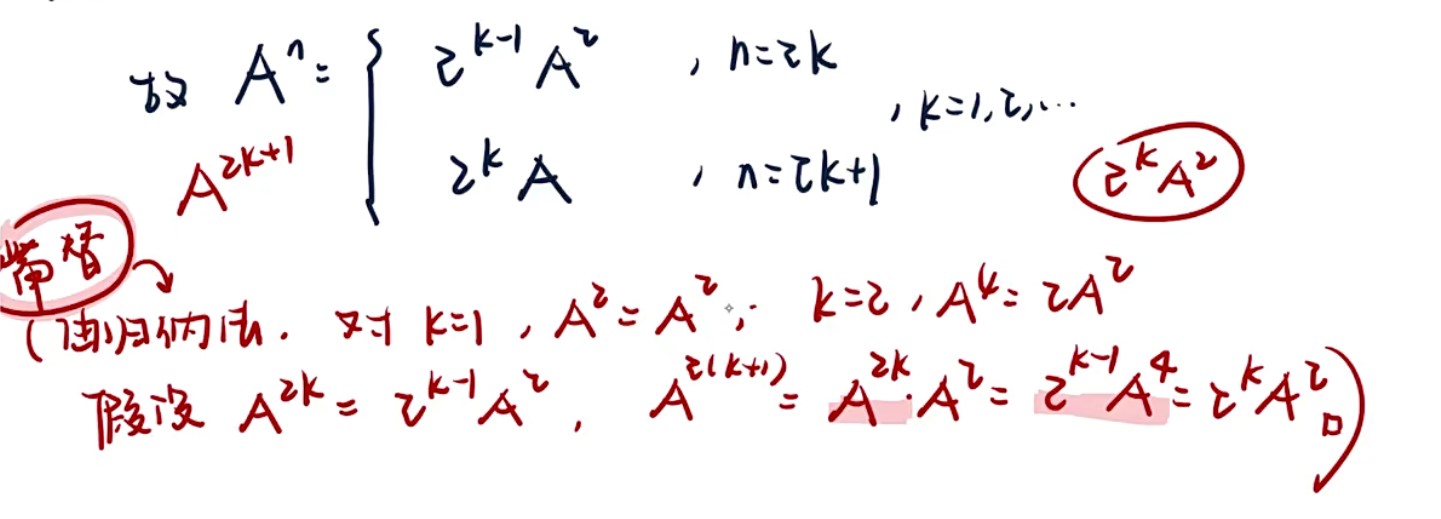 故 Aⁿ = { 2^{k-1} A² , n=2k
2^k A , n=2k+1
, k=1,2,...
A^{2k+1}
2^k A²
(由归纳法. 对 k=1 , A² = A² ; k=2 , A⁴ = 2A²
假设 A^{2k} = 2^{k-1} A² , A^{2(k+1)} = A^{2k}·A² = 2^{k-1} A⁴ = 2^k A² □)